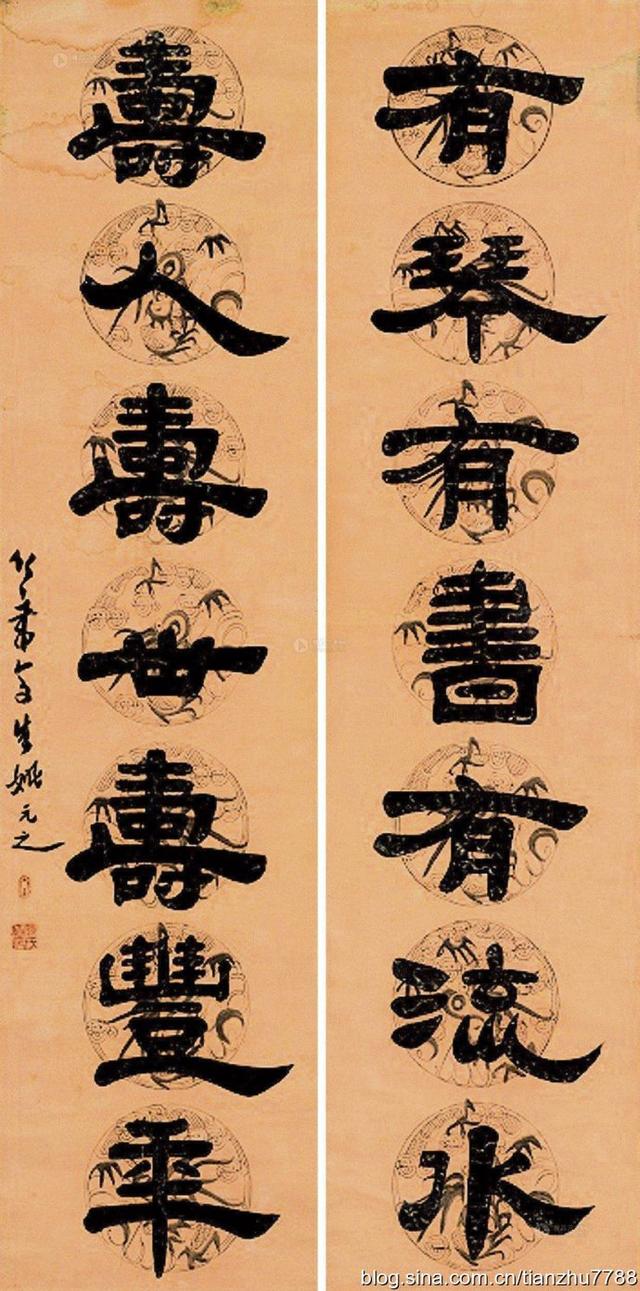 有琴有書有流水
壽人壽世壽豐年
竹葉亭生姚元之
blog.sina.com.cn/tianzhu7788